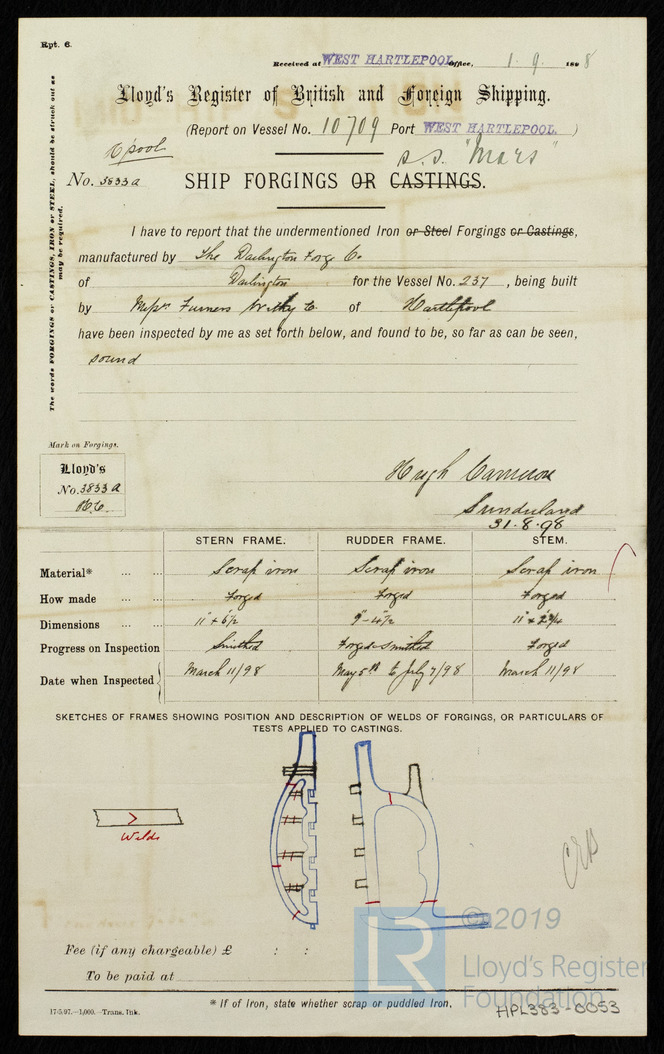 Rpt. 6.
Received at WEST HARTLEPOOL Office, 1. 9. 1898
Lloyd's Register of British and Foreign Shipping.
(Report on Vessel No. 10709 Port WEST HARTLEPOOL. )
s.s. "Mars"
No. 3833A SHIP FORGINGS OR CASTINGS.
The words FORGINGS or CASTINGS, IRON or STEEL, should be struck out as
may be required.
I have to report that the undermentioned Iron or Steel Forgings or Castings,
manufactured by The Darlington Forge Co.
of Darlington for the Vessel No. 237 , being built
by Messrs Furness Withy & Co. of Hartlepool
have been inspected by me as set forth below, and found to be, so far as can be seen,
sound
Mark on Forgings.
Lloyd's
No. 3833A
H.C.
Hugh Cameron
Sunderland
31.8.98
STERN FRAME. RUDDER FRAME. STEM.
Material* ... ... Scrap iron Scrap iron Scrap iron
How made ... ... Forged Forged Forged
Dimensions ... ... 11" x 6½ 9"-4½ 11" x 2¾
Progress on Inspection Smithed Forged & Smithed Forged
Date when Inspected March 11/98 May 5th to July 7/98 March 11/98
SKETCHES OF FRAMES SHOWING POSITION AND DESCRIPTION OF WELDS OF FORGINGS, OR PARTICULARS OF
TESTS APPLIED TO CASTINGS.
Welds
© 2019
LR
Lloyd's Register
Foundation
Fee (if any chargeable) £ : :
To be paid at
* If of Iron, state whether scrap or puddled Iron.
17.5.97.—1,000.—Trans. Ink.
HPL383-0053